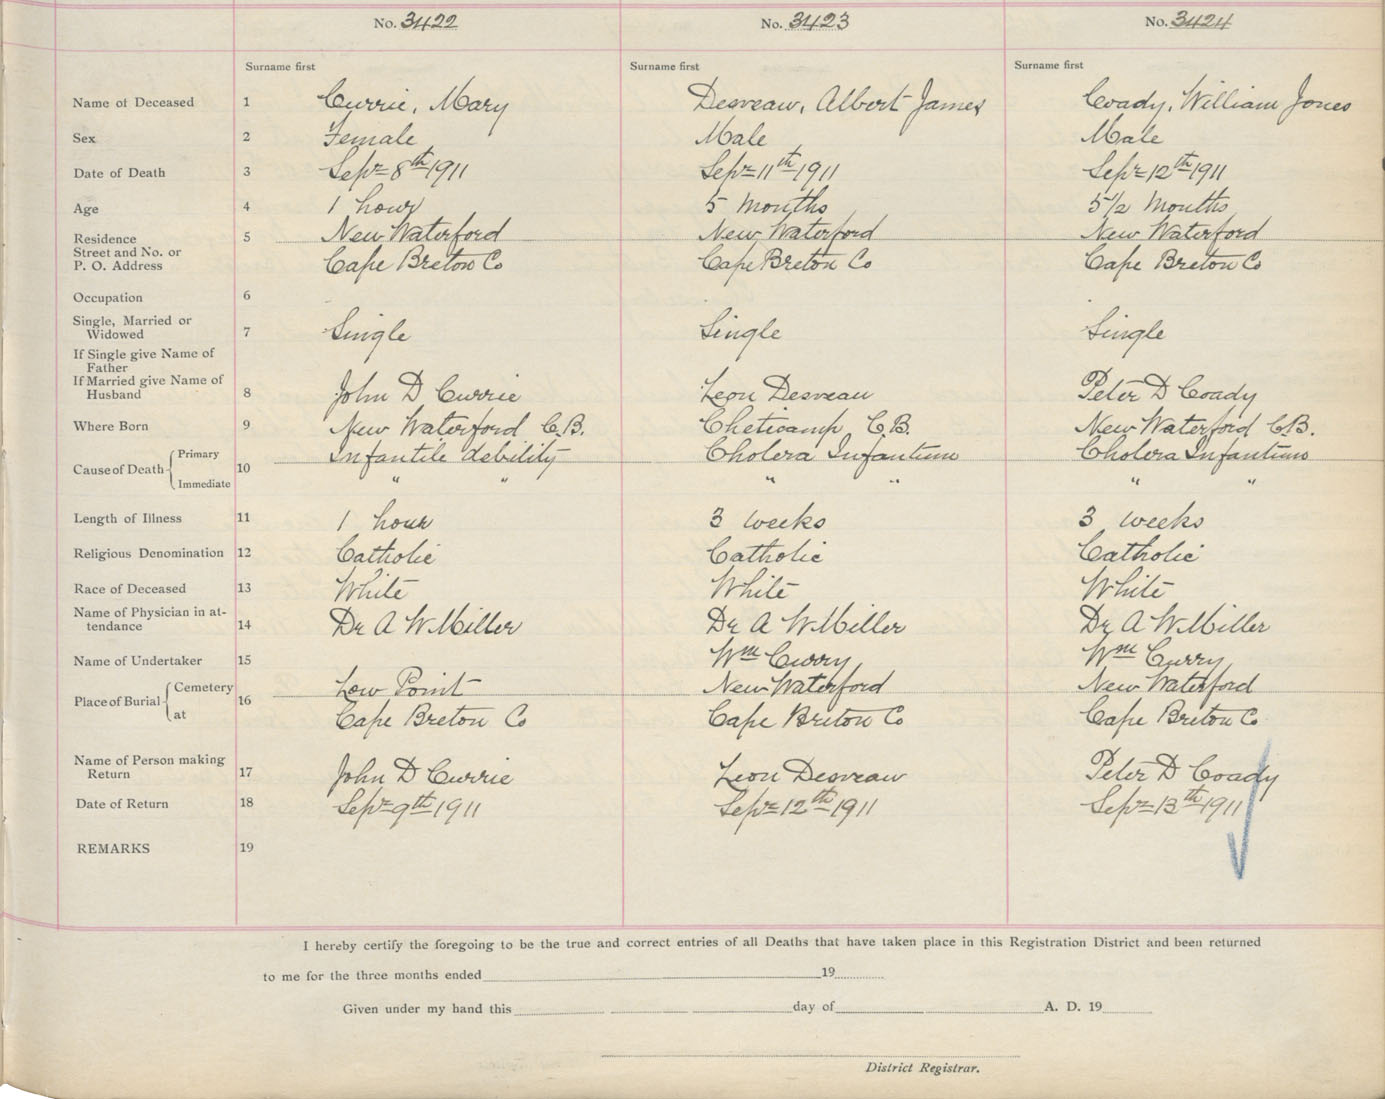 No. 3422 No. 3423 No. 3424
Surname first Surname first Surname first
Name of Deceased 1 Currie, Mary Desveau, Albert James Coady, William Jones
Sex 2 Female Male Male
Date of Death 3 Sept 8th 1911 Sept 11th 1911 Sept 12th 1911
Age 4 1 hour 5 Months 5 1/2 Months
Residence 5 New Waterford New Waterford New Waterford
Street and No. or
P. O. Address Cape Breton Co Cape Breton Co Cape Breton Co
Occupation 6
Single, Married or
Widowed 7 Single Single Single
If Single give Name of
Father
If Married give Name of
Husband 8 John D Currie Leon Desveau Peter D Coady
Where Born 9 New Waterford C.B. Cheticamp C.B. New Waterford C.B.
Cause of Death Primary 10 Infantile debility Cholera Infantum Cholera Infantum
Immediate " " " " " "
Length of Illness 11 1 hour 3 weeks 3 weeks
Religious Denomination 12 Catholic Catholic Catholic
Race of Deceased 13 White White White
Name of Physician in at-
tendance 14 Dr A W Miller Dr A W Miller Dr A W Miller
Name of Undertaker 15 Wm Curry Wm Curry
Place of Burial Cemetery 16 Low Point New Waterford New Waterford
at Cape Breton Co Cape Breton Co Cape Breton Co
Name of Person making
Return 17 John D Currie Leon Desveau Peter D Coady
Date of Return 18 Sept 9th 1911 Sept 12th 1911 Sept 13th 1911
REMARKS 19
I hereby certify the foregoing to be the true and correct entries of all Deaths that have taken place in this Registration District and been returned
to me for the three months ended 19
Given under my hand this day of A. D. 19
District Registrar.